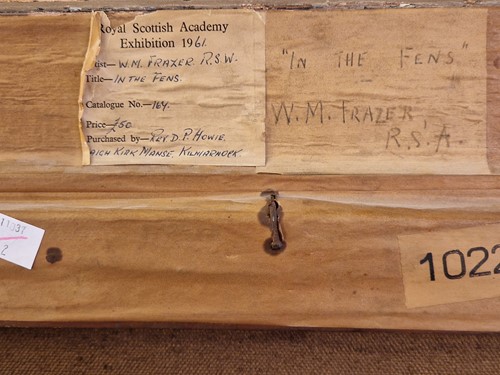 Royal Scottish Academy
Exhibition 1961.
Artist—W. M. FRAZER R.S.W.
Title—IN THE FENS.
Catalogue No.—164.
Price—£50
Purchased by—REV D. P. HOWIE.
KIRK MANSE, KILMARNOCK.
"IN THE FENS"
W. M. FRAZER,
R.S.A.
2
1022